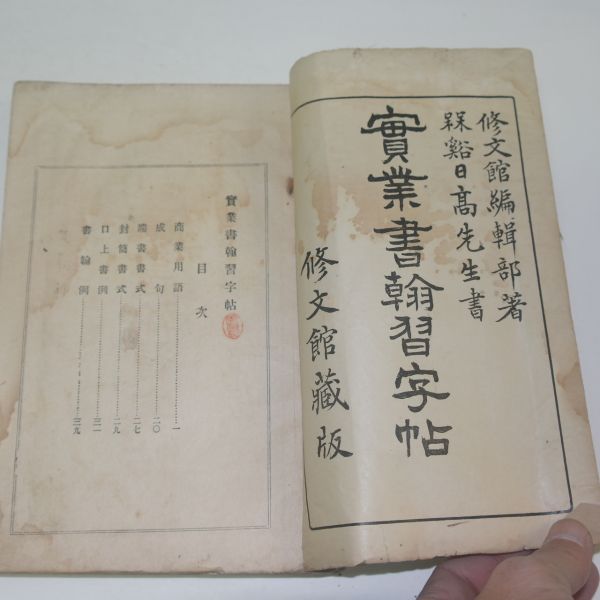 修文館編輯部著
槑谿日高先生書
實業書翰習字帖
修文館藏版
實業書翰習字帖
目次
商業用語……一
成句……二〇
端書書式……二七
封筒書式……二九
口上書例……三一
書翰例……三九